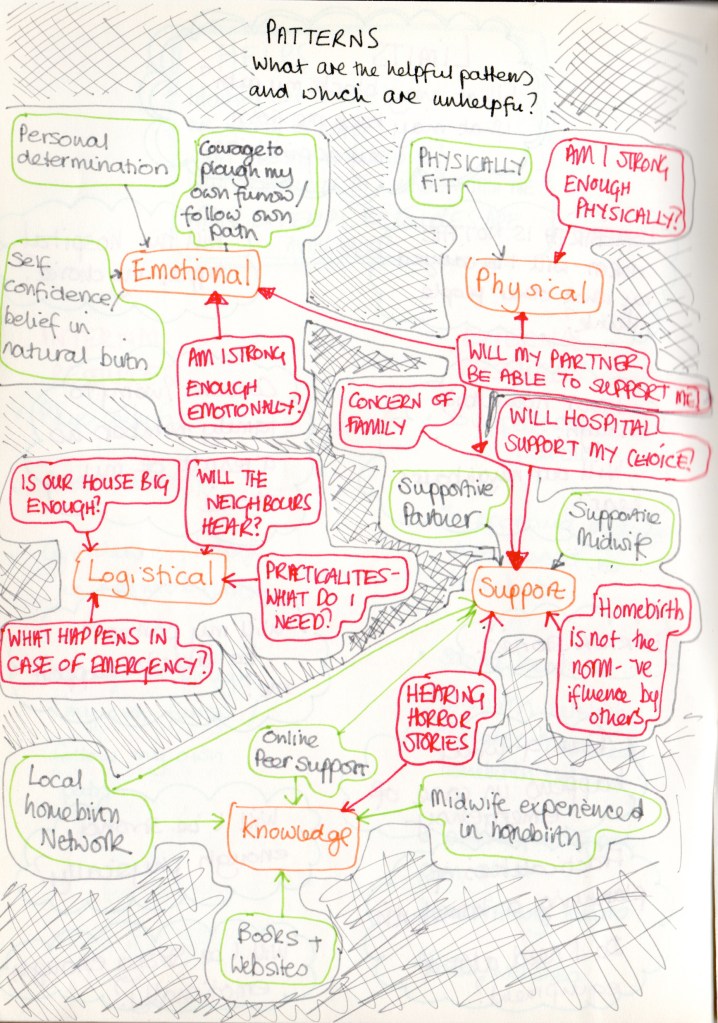 PATTERNS
What are the helpful patterns
and which are unhelpful?
Personal
determination
Courage to
plough my
own furrow/
follow own
path
Self
confidence/
belief in
natural birth
Emotional
AM I STRONG
ENOUGH
EMOTIONALLY?
PHYSICALLY
FIT
AM I STRONG
ENOUGH
PHYSICALLY?
Physical
WILL MY PARTNER
BE ABLE TO SUPPORT ME?
CONCERN OF
FAMILY
WILL HOSPITAL
SUPPORT MY CHOICE?
IS OUR HOUSE BIG
ENOUGH?
WILL THE
NEIGHBOURS
HEAR?
Logistical
PRACTICALITES-
WHAT DO I
NEED?
WHAT HAPPENS IN
CASE OF EMERGENCY?
Supportive
Partner
Supportive
Midwife
Support
Homebirth
is not the
norm- -ve
ifluence by
others
HEARING
HORROR
STORIES
Online
Peer support
Local
homebirth
Network
Knowledge
Midwife experienced
in homebirth
Books +
Websites